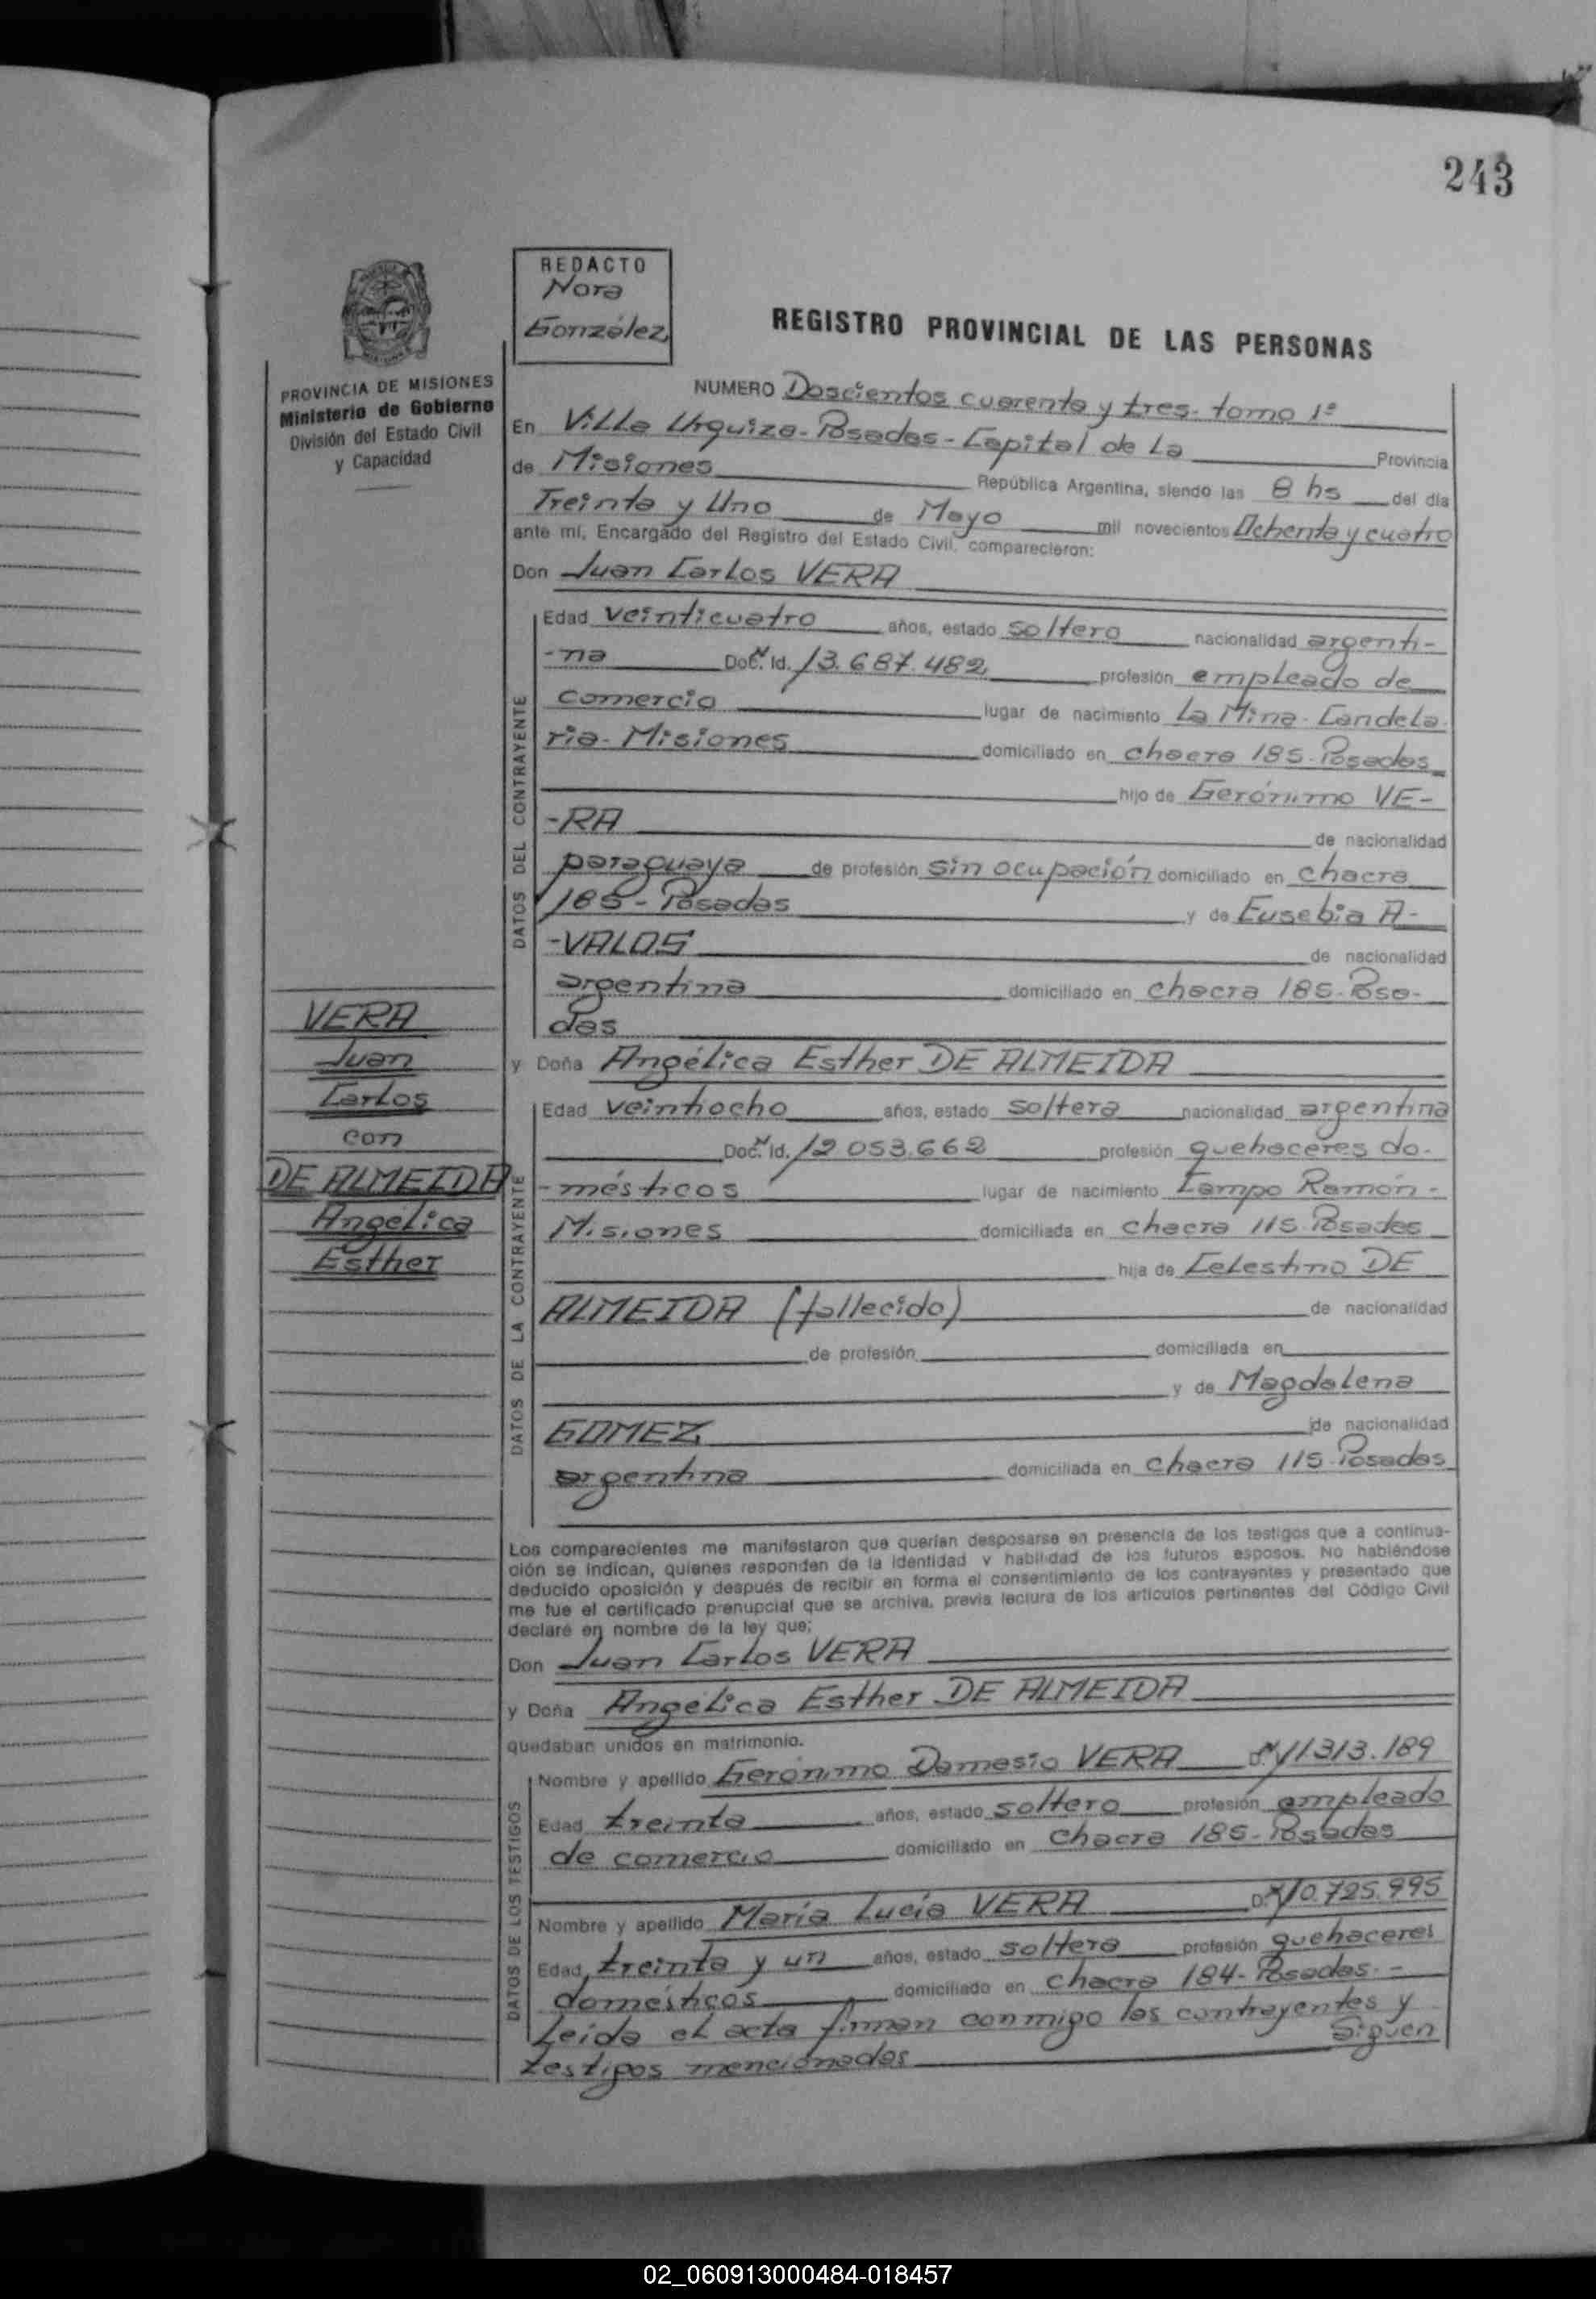 243
REDACTO
Nora
González
REGISTRO PROVINCIAL DE LAS PERSONAS
PROVINCIA DE MISIONES
Ministerio de Gobierno
División del Estado Civil
y Capacidad
NUMERO Doscientos cuarenta y tres- tomo 1º
En Villa Urquiza- Posadas- Capital de La Provincia
de Misiones República Argentina, siendo las 8 hs del día
Treinta y Uno de Mayo mil novecientos Ochenta y cuatro
ante mí, Encargado del Registro del Estado Civil, comparecieron:
Don Juan Carlos VERA
DATOS DEL CONTRAYENTE
Edad veinticuatro años, estado soltero nacionalidad argenti-
-na Doc. Id. 13.687.482 profesión empleado de
comercio lugar de nacimiento La Mina- Candela-
ria- Misiones domiciliado en chacra 185- Posadas
hijo de Gerónimo VE-
-RA de nacionalidad
paraguaya de profesión sin ocupación domiciliado en chacra
185- Posadas y de Eusebia A-
-VALOS de nacionalidad
argentina domiciliado en chacra 185- Posa-
das
VERA
Juan
Carlos
con
DE ALMEIDA
Angélica
Esther
y Doña Angélica Esther DE ALMEIDA
DATOS DE LA CONTRAYENTE
Edad veintiocho años, estado soltera nacionalidad argentina
Doc. Id. 12 053.662 profesión quehaceres do-
-mésticos lugar de nacimiento Campo Ramón-
Misiones domiciliada en chacra 115 Posadas
hija de Celestino DE
ALMEIDA (fallecido) de nacionalidad
de profesión domiciliada en
y de Magdalena
GOMEZ de nacionalidad
argentina domiciliada en chacra 115- Posadas
Los comparecientes me manifestaron que querían desposarse en presencia de los testigos que a continua-
ción se indican, quienes responden de la identidad y habilidad de los futuros esposos. No habiéndose
deducido oposición y después de recibir en forma el consentimiento de los contrayentes y presentado que
me fue el certificado prenupcial que se archiva, previa lectura de los artículos pertinentes del Código Civil
declaré en nombre de la ley que;
Don Juan Carlos VERA
y Doña Angélica Esther DE ALMEIDA
quedaban unidos en matrimonio.
DATOS DE LOS TESTIGOS
Nombre y apellido Gerónimo Damesio VERA 11313.189
Edad treinta años, estado soltero profesión empleado
de comercio domiciliado en chacra 185- Posadas
Nombre y apellido María Lucía VERA 10.725.995
Edad treinta y un años, estado soltera profesión quehaceres
domésticos domiciliado en chacra 184- Posadas.-
Leída el acta firman conmigo los contrayentes y
testigos mencionados Siguen
02_060913000484-018457